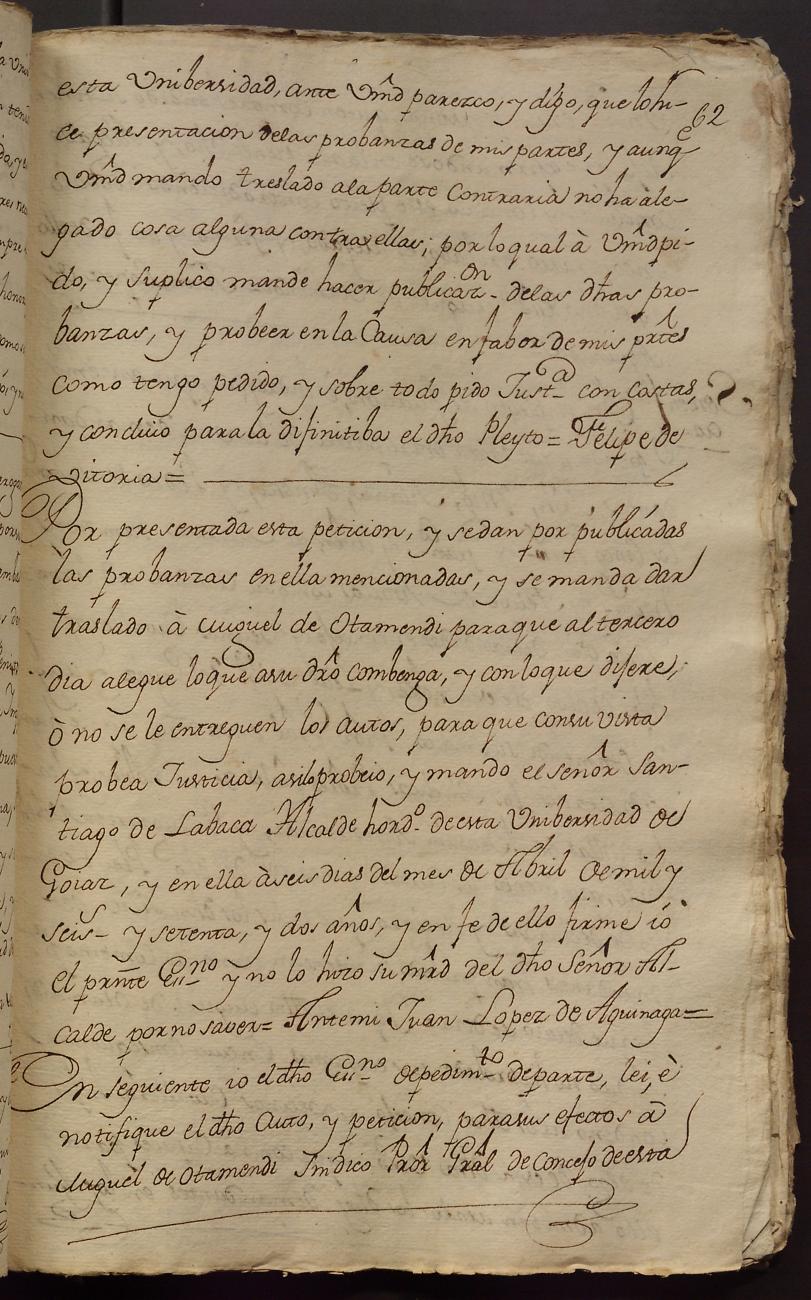 62
esta Vnibersidad, ante Vmd parezco, y digo, que lo hi-
ce presentacion delas probanzas de mis partes, y aunq̃
Vmd mando treslado ala parte Contraria no ha ale-
gado cosa alguna contra ellas; por lo qual à Vmd pi-
do, y suplico mande hacer publicazon delas dhas pro-
banzas, y probeer en la Causa en fabor de mis prtes
como tengo pedido, y sobre todo pido Justa con costas,
y concluio para la difinitiba el dho Pleyto = Felipe de
Vitoria =
Por presentada esta peticion, y sedan por publicadas
las probanzas en ella mencionadas, y se manda dar
traslado à Miguel de Otamendi para que al tercero
dia alegue lo que asu dro combenga, y con lo que dijere,
ò no se le entreguen los autos, para que con su vista
probea Justicia, asi lo probeio, y mando el señor San-
tiago de Labaca Alcalde hordo de esta Vnibersidad de
Goiaz, y en ella à seis dias del mes de Abril de mil y
seis y setenta, y dos años, y en fe de ello firme io
el prnte Essno y no lo hizo su mrd del dho Señor Al-
calde por no saver = Antemi Juan Lopez de Aguinaga =
En seguiente io el dho Essno de pedimto de parte, lei, è
notifique el dho Auto, y peticion, para sus efectos à
Miguel de Otamendi Sindico Pror Gral de Concejo de esta